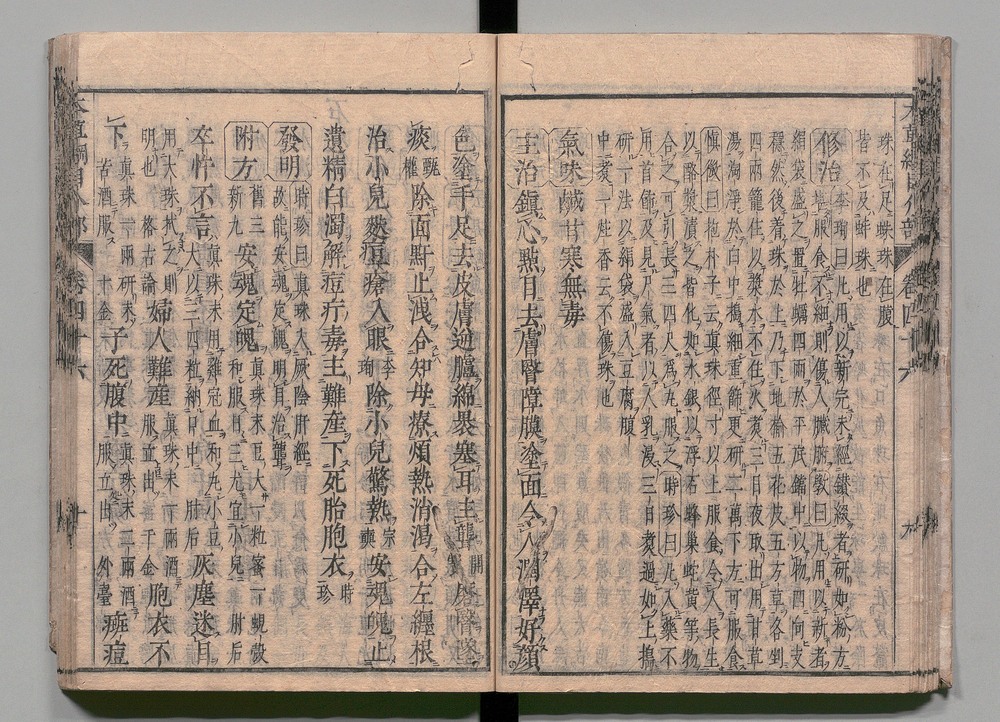 珠在足蛛珠在腹
皆不及蚌珠也
修治李珣曰凡用以新完未經鑽綴者研如粉方
堪服食不細則傷人臟腑斅曰凡用以新者
絹袋盛之置牡蠣四兩於平底鐺中以物四向支
穩然後着珠於上乃下地榆五花皮五方草各剉
四兩籠住以漿水不住火煮三日夜取出用甘草
湯淘淨於臼中搗細重篩更研二萬下方可服食
慎微曰抱朴子云真珠徑寸以上服食令人長生
以酪漿漬之皆化如水銀以浮石蜂巢蛇黃等物
合之可引長三四尺為丸服之時珍曰凡入藥不
用首飾及見尸氣者以人乳浸三日煮過如上搗
研一法以絹袋盛入豆腐腹
中煮一炷香云不傷珠也
氣味鹹甘寒無毒
主治鎮心點目去膚瞖障膜塗面令人潤澤好顏
色塗手足去皮膚逆臚綿裹塞耳主聾開寶磨瞖墜
痰甄權除面䵟止洩合知母療煩熱消渴合左纏根
治小兒麩痘瘡入眼李珣除小兒驚熱宗奭安魂魄止
遺精白濁解痘疔毒主難產下死胎胞衣時珍
發明時珍曰真珠入厥陰肝經
故能安魂定魄明目治聾
附方舊三新九安魂定魄真珠末豆大一粒蜜一蜆殼和服日三尤宜小兒肘后
卒忤不言真珠末用雞冠血和丸小豆大以三四粒納口中肘后灰塵迷目
用大珠拭之則明也格古論婦人難產真珠末一兩酒服立出千金胞衣不
下真珠一兩研末苦酒服千金子死腹中真珠末二兩酒服立出外臺癍痘
卷四十六
卷四十六